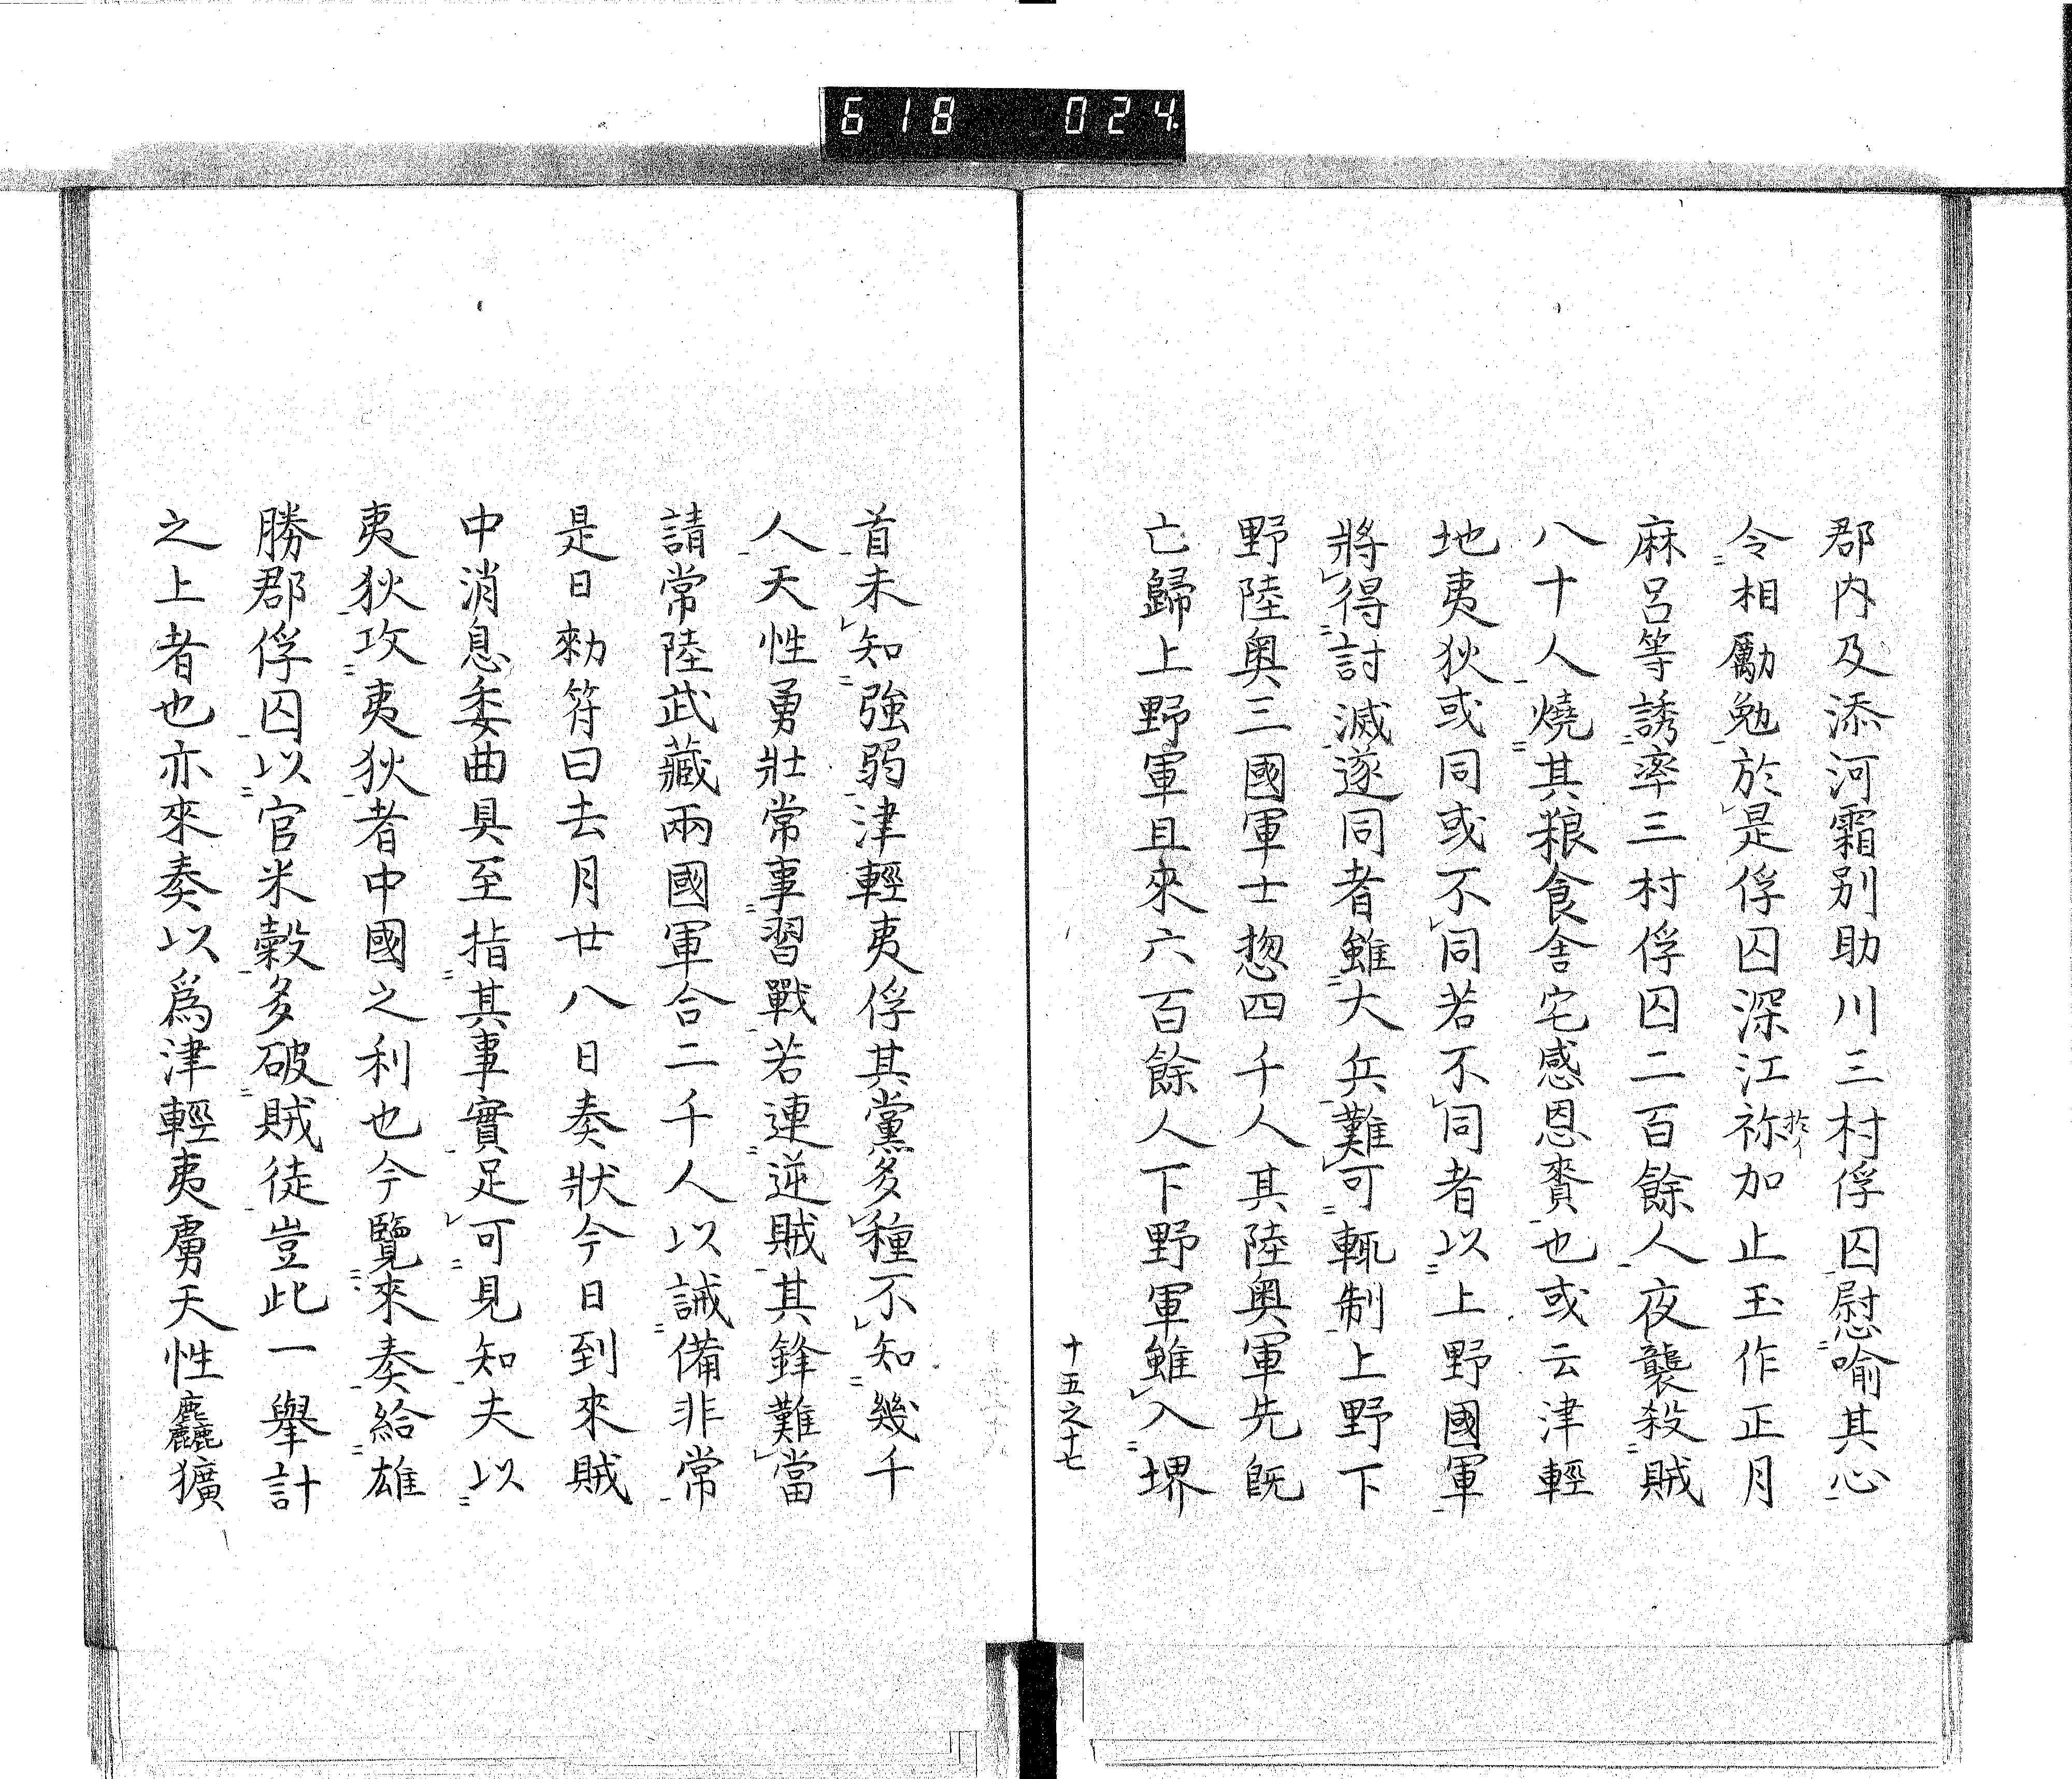 618 024
郡内及添河霜别助川三村俘囚慰喩其心
令相勵勉於是俘囚深江祢加止玉作正月
麻呂等誘率三村俘囚二百餘人夜襲殺賊
八十人燒其粮食舎宅感恩賚也或云津輕
地夷狄或同或不同若不同者以上野國軍
將得討滅遂同者雖大兵難可輒制上野下
野陸奥三國軍士惣四千人其陸奥軍先既
亡歸上野軍且來六百餘人下野軍雖入堺
十五之十七
首未知強弱津輕夷俘其黨多種不知幾千
人天性勇壯常事習戰若連逆賊其鋒難當
請常陸武藏兩國軍合二千人以誡備非常
是日勑符曰去月廿八日奏狀今日到來賊
中消息委曲具至指其事實足可見知夫以
夷狄攻夷狄者中國之利也今覽來奏給雄
勝郡俘囚以官米穀多破賊徒豈此一擧計
之上者也亦來奏以爲津輕夷虜天性麤獷